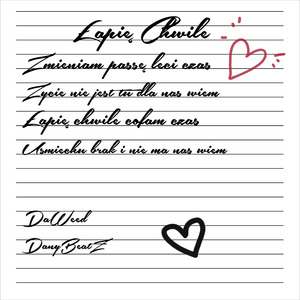 Łapię Chwile
Zmieniam passę leci czas
Życie nie jest tu dla nas wiem
Łapię chwile cofam czas
Uśmiechu brak i nie ma nas wiem
DaWeed
DanyBeatZ